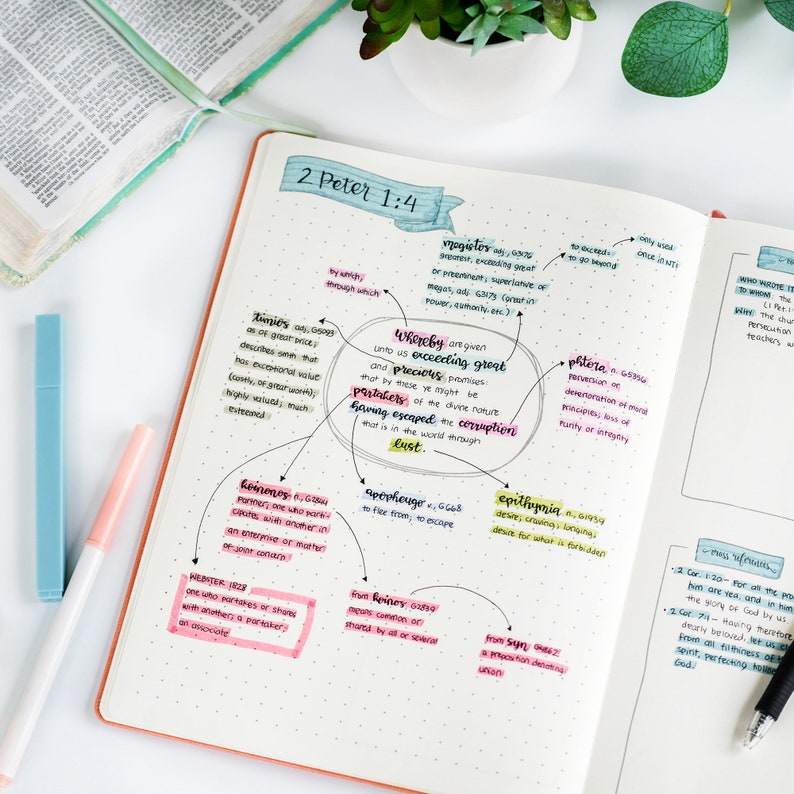 2 Peter 1:4
megistos adj, G3176
greatest, exceeding great
or preeminent; superlative of
megas, adj G3173 (great in
power, authority. etc.)
to exceed:
to go beyond
only used
once in NT!
by which,
through which
timios adj, G5093
as of great price;
describes smth that
has exceptional value
(costly, of great worth);
highly valued; much
esteemed
Whereby are given
unto us exceeding great
and precious promises:
that by these ye might be
partakers of the divine nature
having escaped the corruption
that is in the world through
lust.
phtora n. G5356
perversion or
deterioration of moral
principles; loss of
purity or integrity
koinonos n., G2844
partner; one who parti-
cipates with another in
an enterprise or matter
of joint concern
apopheugo v., G668
to flee from; to escape
epithymia n., G1939
desire; craving; longing;
desire for what is forbidden
WEBSTER 1828
one who partakes or shares
with another; a partaker;
an associate
from koinos, G2839
means common or
shared by all or several
from syn, G4862
a preposition denoting
union
WHO WROTE IT
TO WHOM: The
(1 Pet. 1:
WHY: The chur
Persecution
teachers w
cross references
• 2 Cor. 1:20 - For all the pro
him are yea, and in him
the glory of God by us
• 2 Cor. 7:1 - Having therefore
dearly beloved, let us cl
from all filthiness of
spirit, perfecting holine
God.